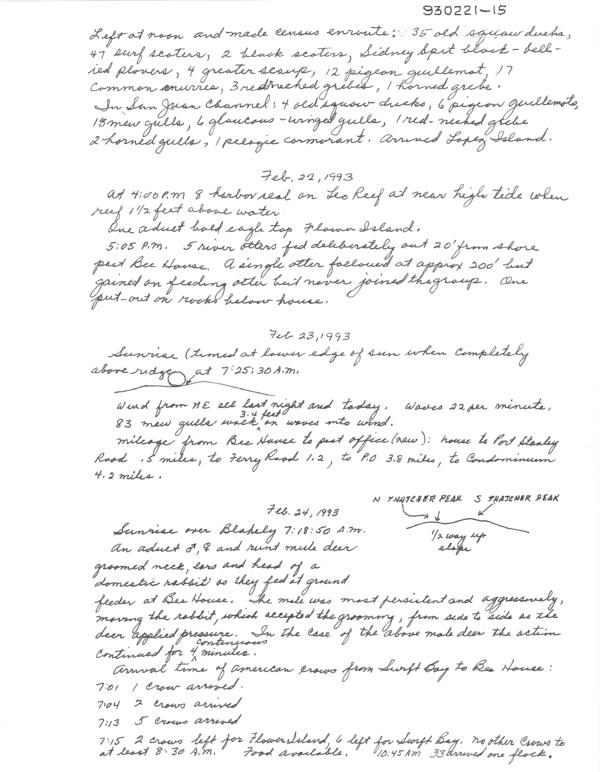 930221-15
Left at noon and made census enroute: 35 old squaw ducks,
47 surf scoters, 2 black scoters, Sidney Spit black-bell-
ied plovers, 4 greater scaup, 12 pigeon guillemot, 17
common murres, 3 rednecked grebes, 1 horned grebe.
In San Juan Channel: 4 old squaw ducks, 6 pigeon guillemots,
18 mew gulls, 6 glaucous-winged gulls, 1 red-necked grebe
2 horned gulls, 1 pelagic cormorant. Arrived Lopez Island.
Feb. 22, 1993
At 4:00 P.M 8 harbor seal on Leo Reef at near high tide when
reef 1 1/2 feet above water.
One adult bald eagle top Flower Island.
5:05 P.M. 5 river otters fed deliberately out 20' from shore
past Bee House. A single otter followed at approx 200' but
gained on feeding otter but never joined the group. One
put-out on rocks below house.
Feb 23, 1993
Sunrise (timed at lower edge of sun when completely
above ridge at 7:25:30 A.M.
Wind from NE all last night and today. Waves 22 per minute,
3-4 feet
83 mew gulls on waves into wind.
mileage from Bee House to post office (new): house to Port Stanley
Road .5 miles, to Ferry Road 1.2, to P.O 3.8 miles, to Condominium
4.2 miles.
N THATCHER PEAK S THATCHER PEAK
Feb. 24, 1993
Sunrise over Blakely 7:18:50 A.M.
1/2 way up
slope
An adult ♂, ♀ and runt mule deer
groomed neck, ears and head of a
domestic rabbit as they fed at ground
feeder at Bee House. The male was most persistent and aggressively,
moving the rabbit, which accepted the grooming, from side to side as the
deer applied pressure. In the case of the above male deer the action
continuous
continued for 4 minutes.
Arrival time of American crows from Swift Bay to Bee House:
7:01 1 crow arrived.
7:04 2 crows arrived
7:13 5 crows arrived
7:15 2 crows left for Flower Island, 6 left for Swift Bay. No other crows to
at least 8:30 A.M. Food available. 10:45 AM 33 arrived one flock.